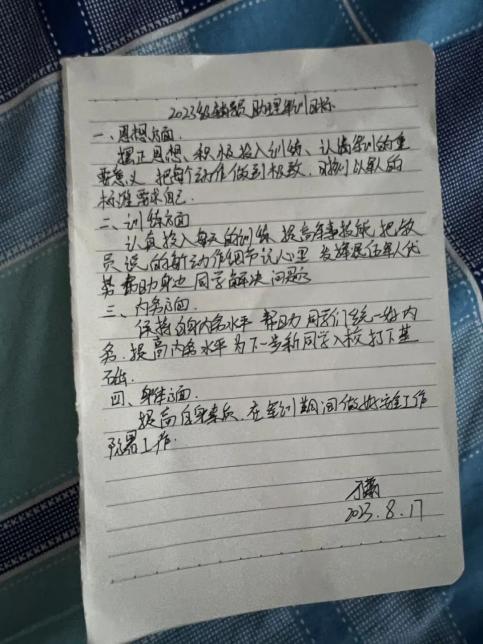 2023级辅导员助理军训目标
一、思想方面.
摆正思想、积极投入训练、认清军训的重
要意义 把每个动作做到极致, 时刻以军人的
标准要求自己.
二、训练方面
认真投入每天的训练 提高军事技能 把教
员说的每动作细节记心里 发挥退伍军人优
势 帮助身边同学解决问题
三、内务方面.
保持自身内务水平 帮助同学们统一好内
务.提高内务水平为下一步新同学入校打下基
础.
四、身体方面.
提高自身素质、在军训期间做好安全工作
防暑工作.
2023.8.17